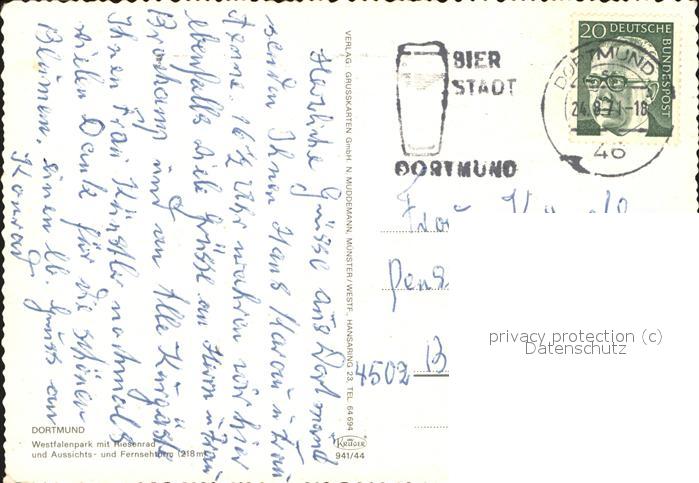 Herzliche Grüsse aus Dortmund
senden Ihnen Hans u. Frau
16½ Uhr waren wir hier
ebenfalls viele Grüsse an Herrn u. Frau
Brinkamp und an Alle Kurgäste
Ihnen Frau Künstler nochmals
vielen Dank für die schönen
Blumen, einen lb. Gruss an
Konrad.
VERLAG: GRUSSKARTEN GmbH. N. MUDDEMANN, MÜNSTER/WESTF., HANSARING 23, TEL. 64694
BIER
STADT
DORTMUND
20 DEUTSCHE
BUNDESPOST
DORTMUND
24.8.71-18
46
Frau
Pens
4502 B
privacy protection (c)
Datenschutz
DORTMUND
Westfalenpark mit Riesenrad
und Aussichts- und Fernsehturm (218 m)
KRÜGER
941/44